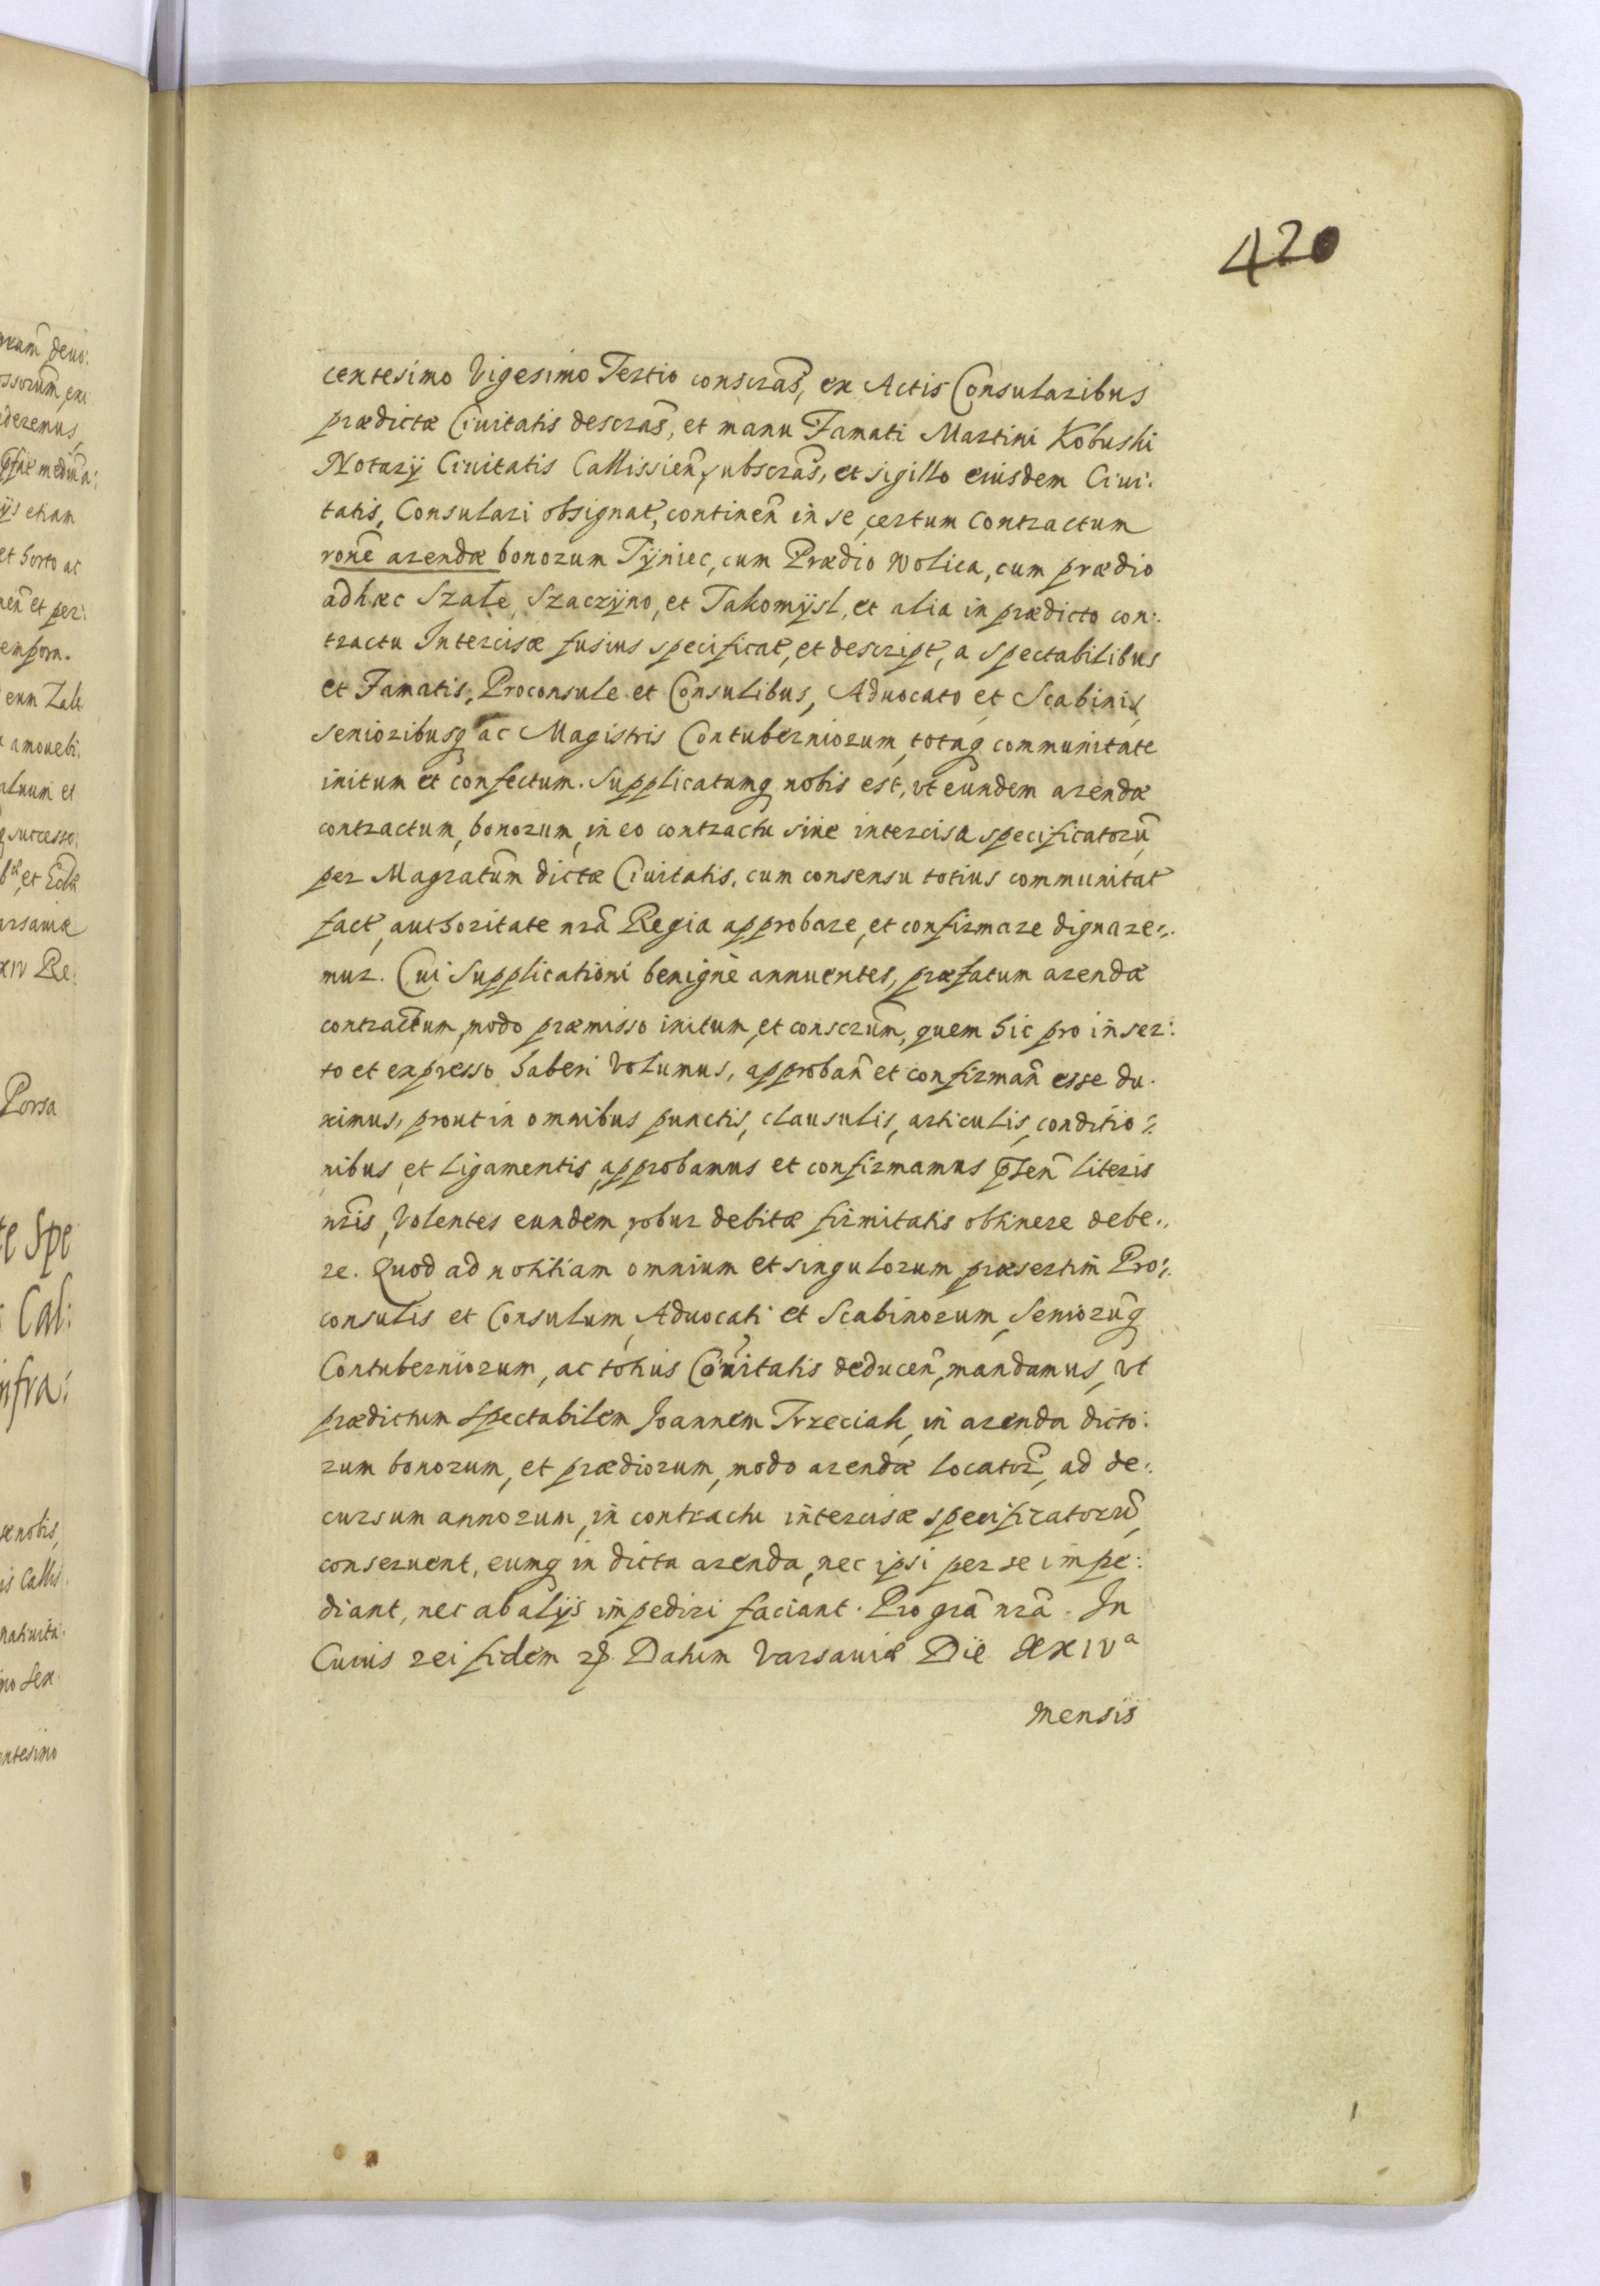 420
centesimo Vigesimo Tertio conscrãs, ex Actis Consularibus
prædictæ Ciuitatis descrãs, et manu Famati Martini Kobuski
Notarÿ Ciuitatis Callissien̄, subscrãs, et sigillo eiusdem Ciui:
tatis, Consulari obsignat̃, continen̄ in se, certum Contractum
ronẽ arendæ bonorum Tÿniec, cum Prædio Wolica, cum prædio
adhæc Szałe, Szaczÿno, et Takomÿsl, et alia in prædicto con:
tractu Intercisæ fusius specificat̃, et descript̃, a Spectabilibus
et Famatis, Proconsule et Consulibus, Aduocato et Scabinis,
Senioribusq ac Magistris Contuberniorum, totaq communitate
initum et confectum. Supplicatumq nobis est, vt eundem arendæ
contractum, bonorum, in eo contractu siue intercisa specificatorũ
per Magratũm dictæ Ciuitatis, cum consensu totius communitat̃
fact̃, authoritate nrã Regia approbare, et confirmare dignare:
mur. Cui Supplicationi benignè annuentes, præfatum arendæ
contractum, modo præmisso initum, et conscrũm, quem hic pro inser:
to et expresso haberi Volumus, approban̄ et confirman̄ esse du:
ximus, prout in omnibus punctis, clausulis, articulis, conditio:
nibus, et ligamentis, approbamus et confirmamus p̃sen̄ literis
nrĩs, Volentes eundem, robur debitæ firmitatis obtinere debe:
re. Quod ad notitiam omnium et singulorum præsertim Pro:
consulis et Consulum, Aduocati et Scabinorum, Seniorũq
Contuberniorum, ac totius Ciuitatis deducen̄, mandamus, vt
prædictum Spectabilem Joannem Trzeciak, in arenda dicto:
rum bonorum, et prædiorum, modo arendæ locator̃, ad de:
cursum annorum, in contractu intercisæ specificatorũ,
conseruent, eumq in dicta arenda, nec ipsi per se impe:
diant, nec ab alÿs impediri faciant. Pro grã nrã. In
Cuius rei fidem Datum Varsauiæ Die XXIVª
mensis